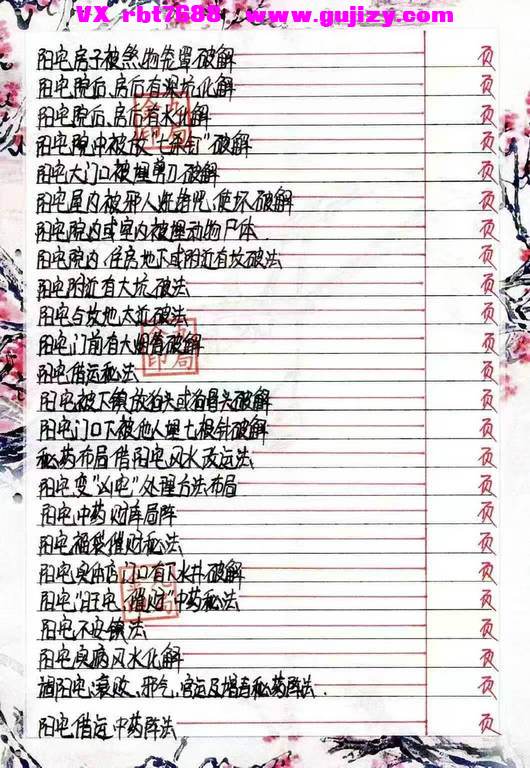 VX rbt7688 www.gujizy.com
阳宅房子被煞物危置破解 页
阳宅院后、房后有深坑化解 页
阳宅院后、房后有水化解 页
阳宅院中被放“七星钉”破解 页
阳宅大门口被埋剪刀破解 页
阳宅屋内被邪人 使坏破解 页
阳宅院内或室内被埋动物尸体 页
阳宅院内、住房地下或附近有坟破法 页
阳宅附近有大坑破法 页
阳宅与坟地太近破法 页
阳宅门前有大烟筒破解 页
阳宅借运秘法 页
阳宅被下镇放狗头或狗骨头破解 页
阳宅门口下被他人埋七根针破解 页
秘药布局借阳宅风水改运法 页
阳宅变“凶宅”处理方法布局 页
阳宅中药财库局阵 页
阳宅福袋催财秘法 页
阳宅卖中店门口有下水井破解 页
阳宅“旺宅、催财”中药秘法 页
阳宅不安镇法 页
阳宅疾病风水化解 页
阳宅衰败、邪气、官运及增寿秘药阵法. 页
阳宅借运中药阵法 页